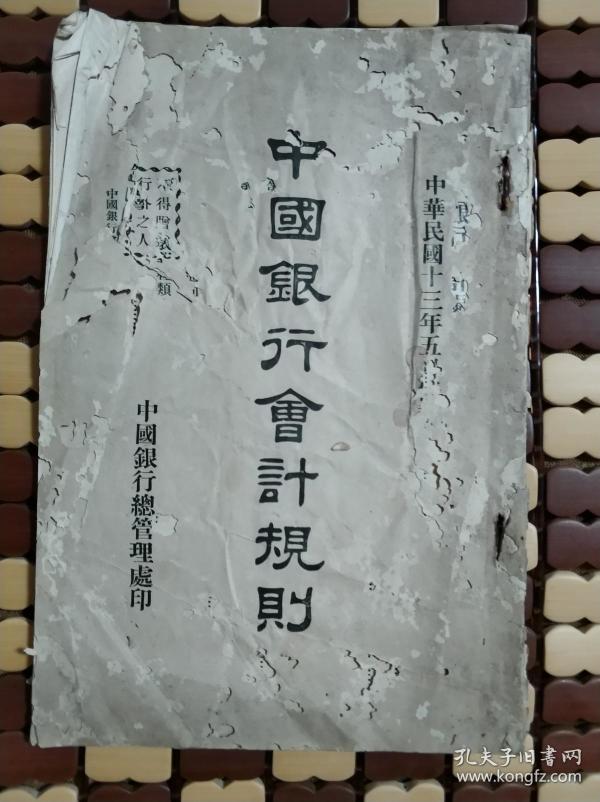 中華民國十三年五
中國銀行會計規則
得贈
行外之人
類
中國銀行
中國銀行總管理處印
孔夫子旧书网
www.kongfz.com